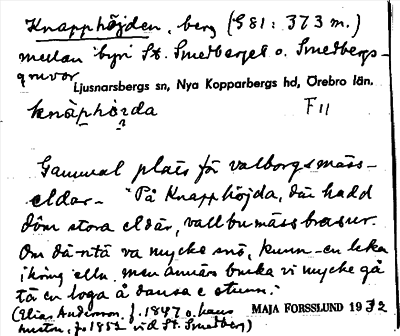 Knapphöjden, berg (G 81: 373 m.)
mellan byn St. Smedberget o. Smedbergs-
gruvor
Ljusnarsbergs sn, Nya Kopparbergs hd, Örebro län.
knäphöẓda F 11
Gammal plats för valborgsmäss-
eldar. "På Knapphöjda, där hadd
döm stora eldär, vallbumässbrasur.
Om dä ntä va mycke snö, kunn en leka
ikring elln men annärs bruka vi mycke gå
tä en loga å dansa e stunn."
(Elias Andersson f. 1847 o. hans
hustru, f. 1852 vid St. Smedben)
MAJA FORSSLUND 1932